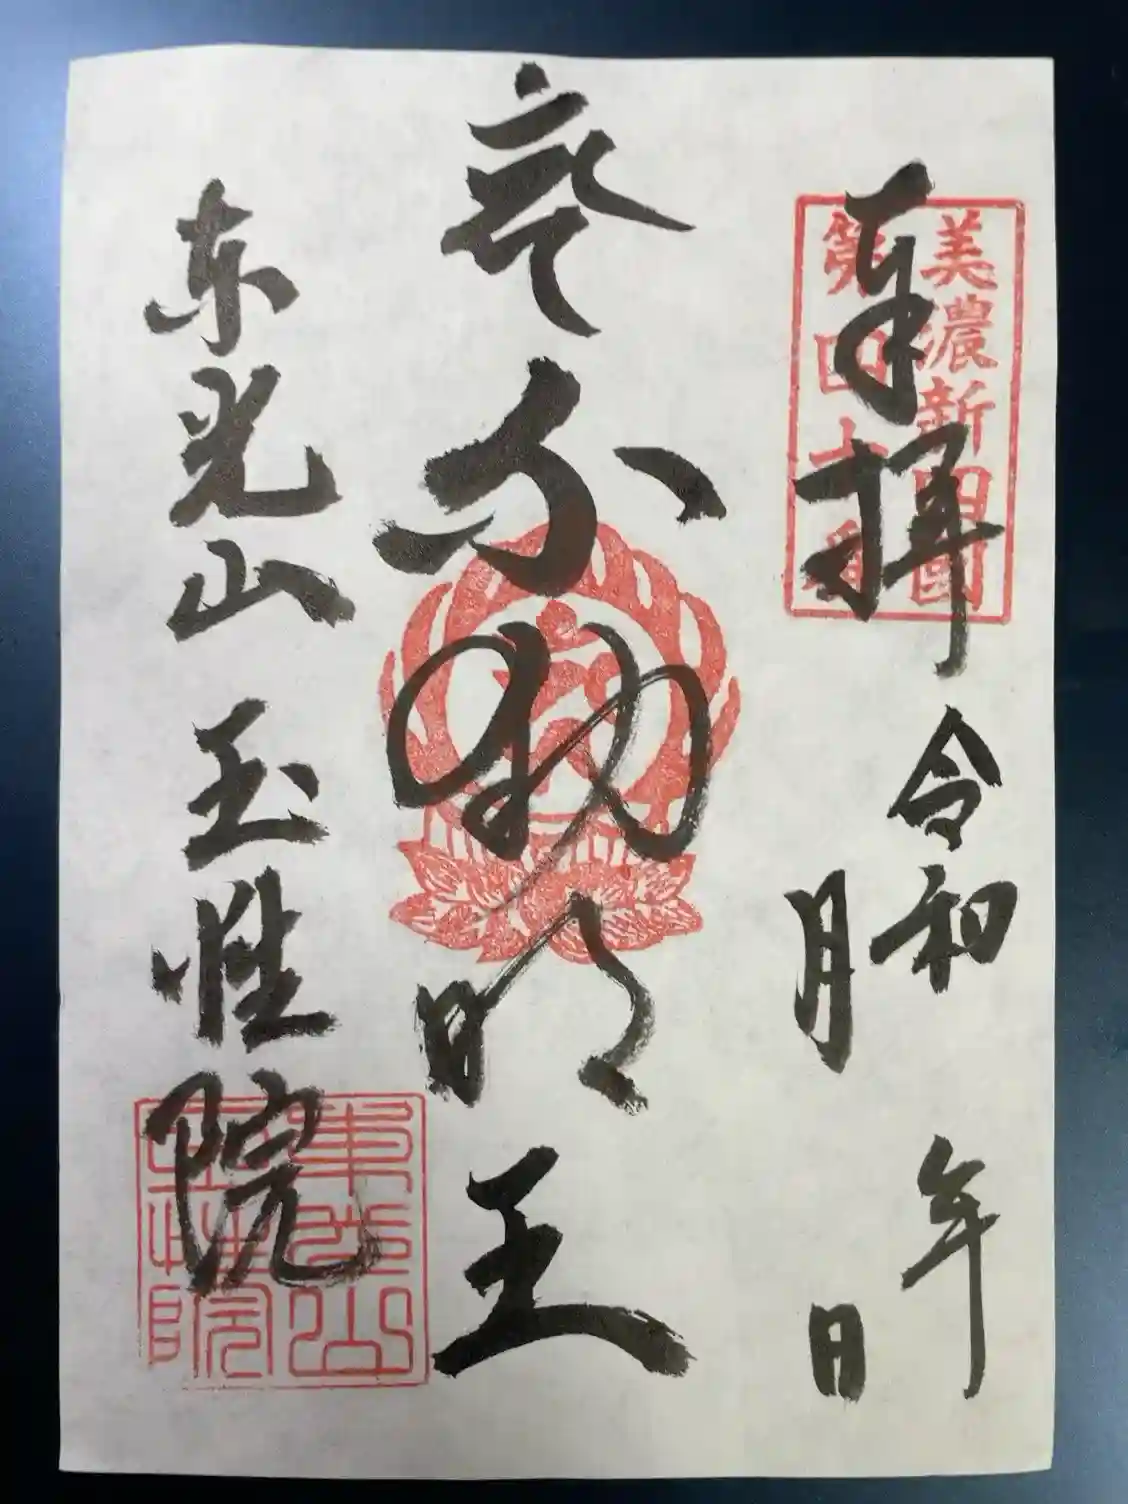 美濃新四國
第四十番
奉拝
令和 年
月 日
不動明王
東光山 玉性院
東光山
玉性院